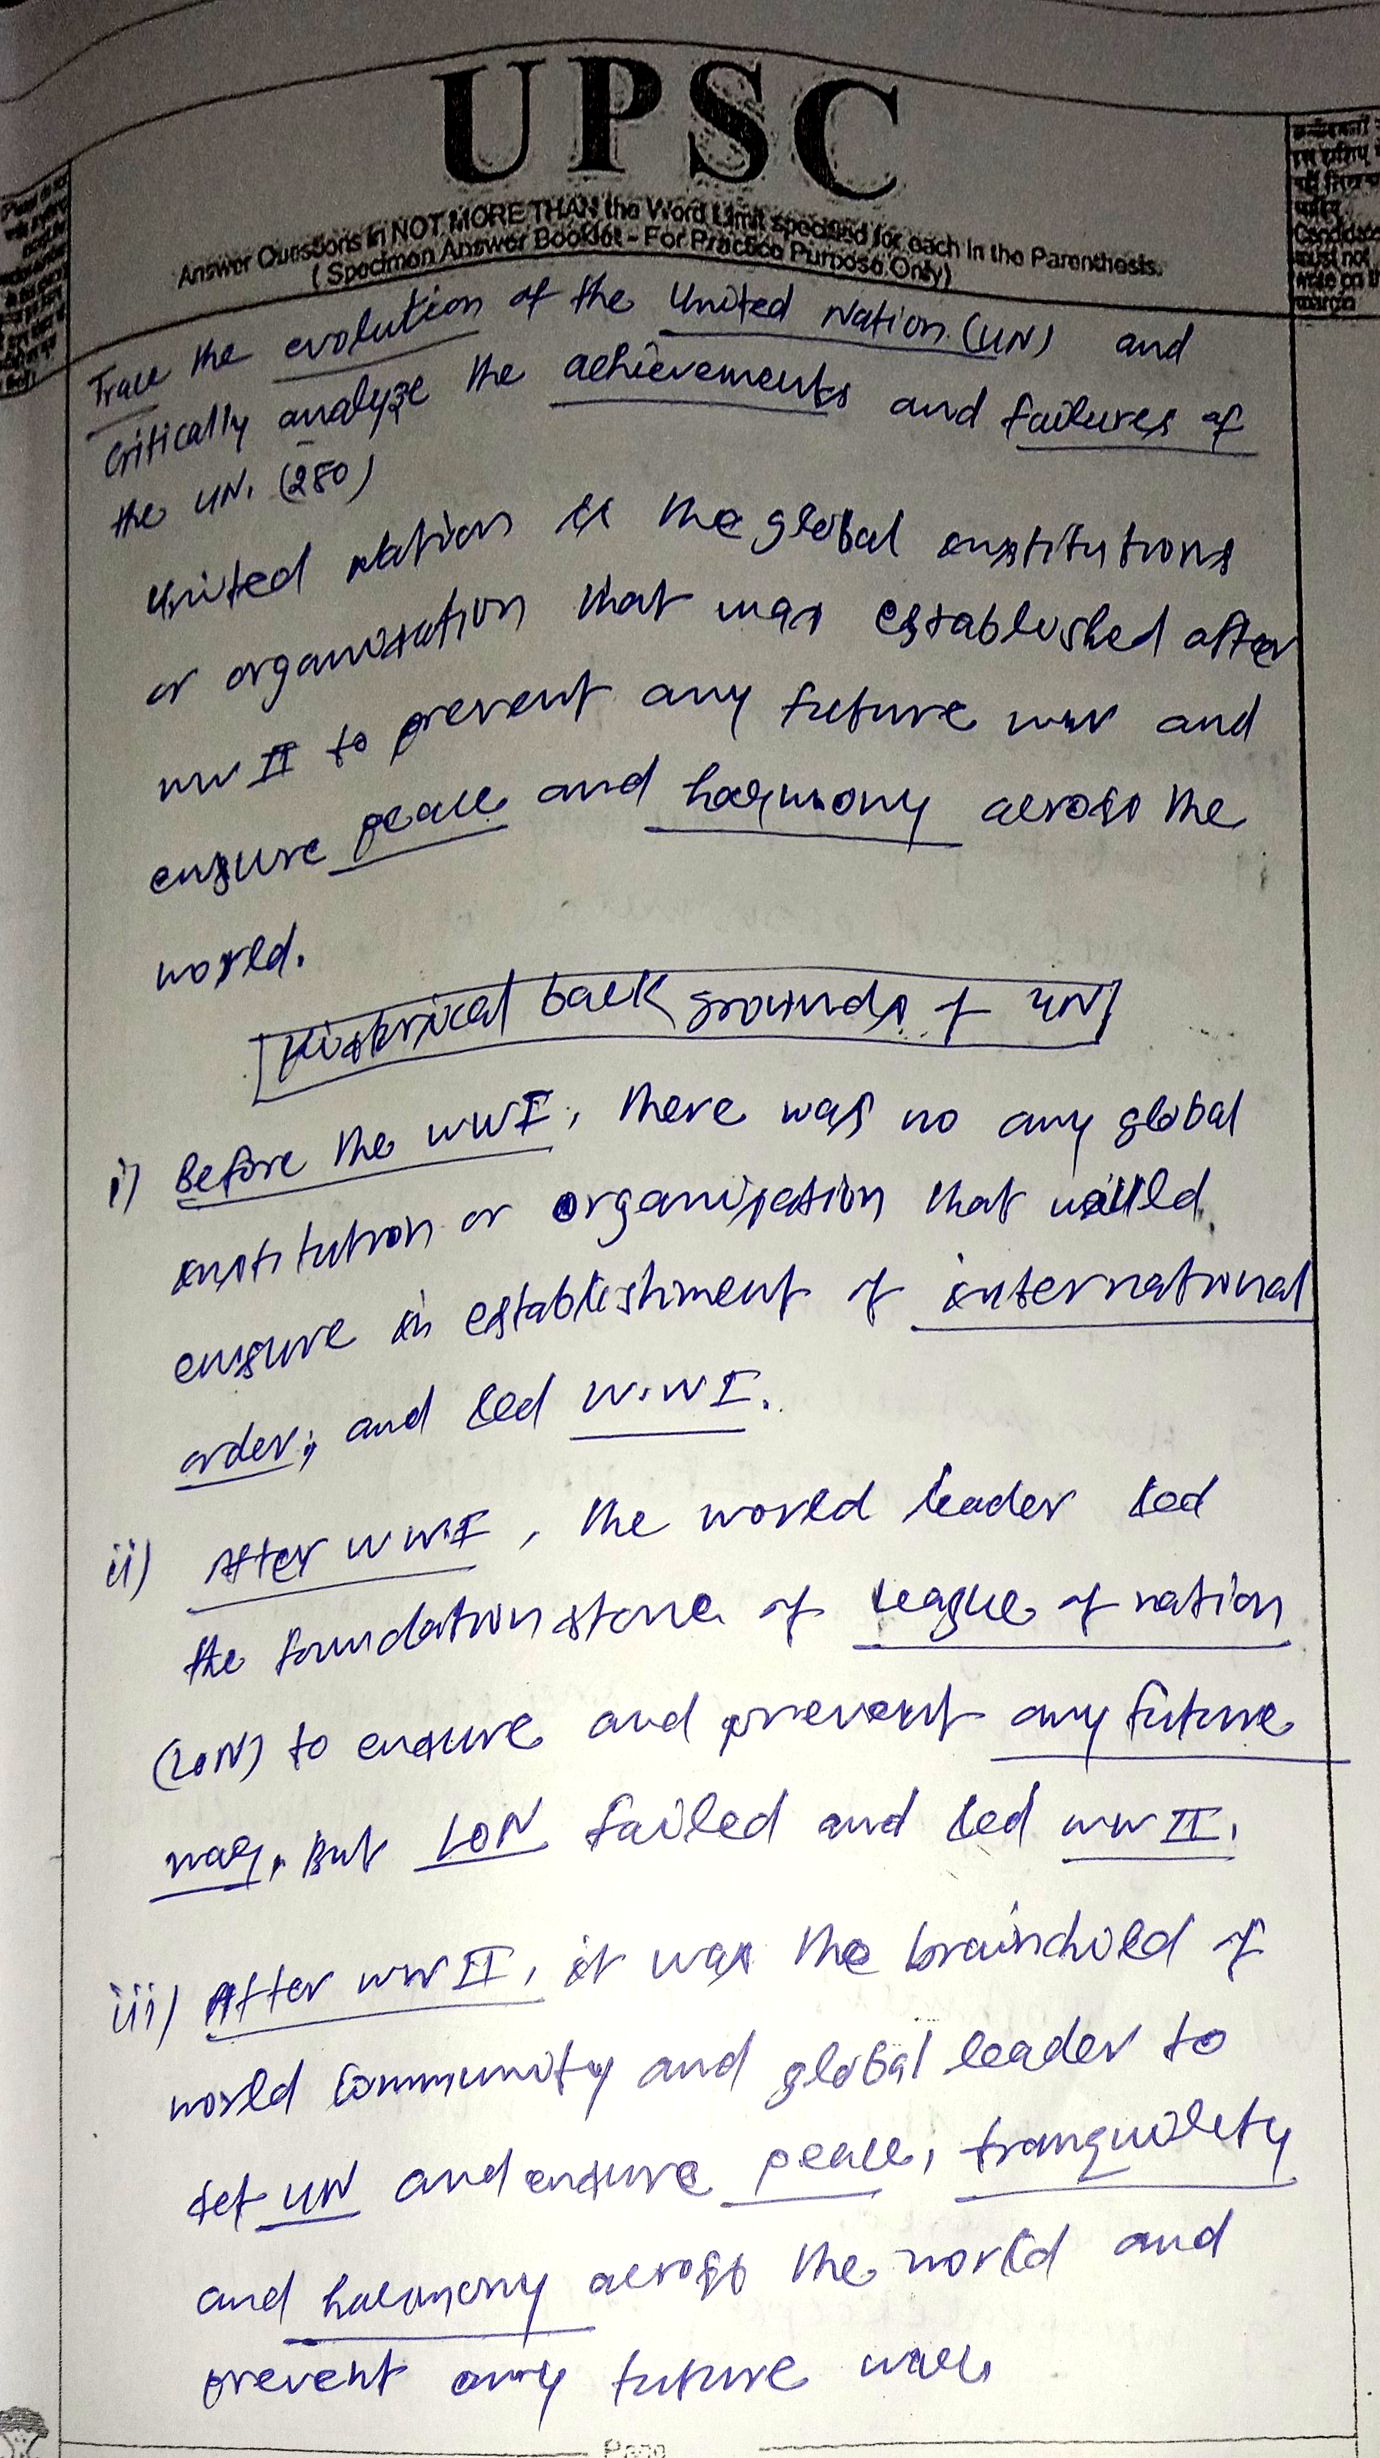 UPSC
Answer Questions in NOT MORE THAN the Word Limit specified for each in the Parenthesis.
( Specimen Answer Booklet - For Practice Purpose Only)
Candidates
must not
write on the
margin
Trace the evolution of the United Nation (UN) and
critically analyze the achievements and failures of
the UN. (250)
United Nation is the global institutions
or organisation that was established after
WW II to prevent any future war and
ensure peace and harmony across the
world.
Historical back grounds of UN
i) Before the WWI, there was no any global
institution or organisation that would
ensure in establishment of international
order; and led W.W I.
ii) After WW.I, the world leader led
the foundation stone of League of nation
(LON) to ensure and prevent any future
war. But LON failed and led WW II.
iii) After WW II, it was the brainchild of
world community and global leader to
set UN and ensure peace, tranquilety
and harmony across the world and
prevent any future war.
Page